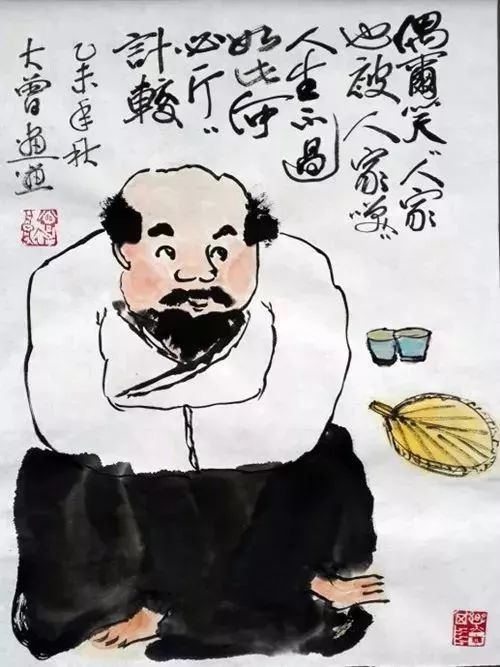 偶爾笑〻人家
也被人家咲〻
人生不過
如此何
必斤〻
計較
乙未年秋
大曾